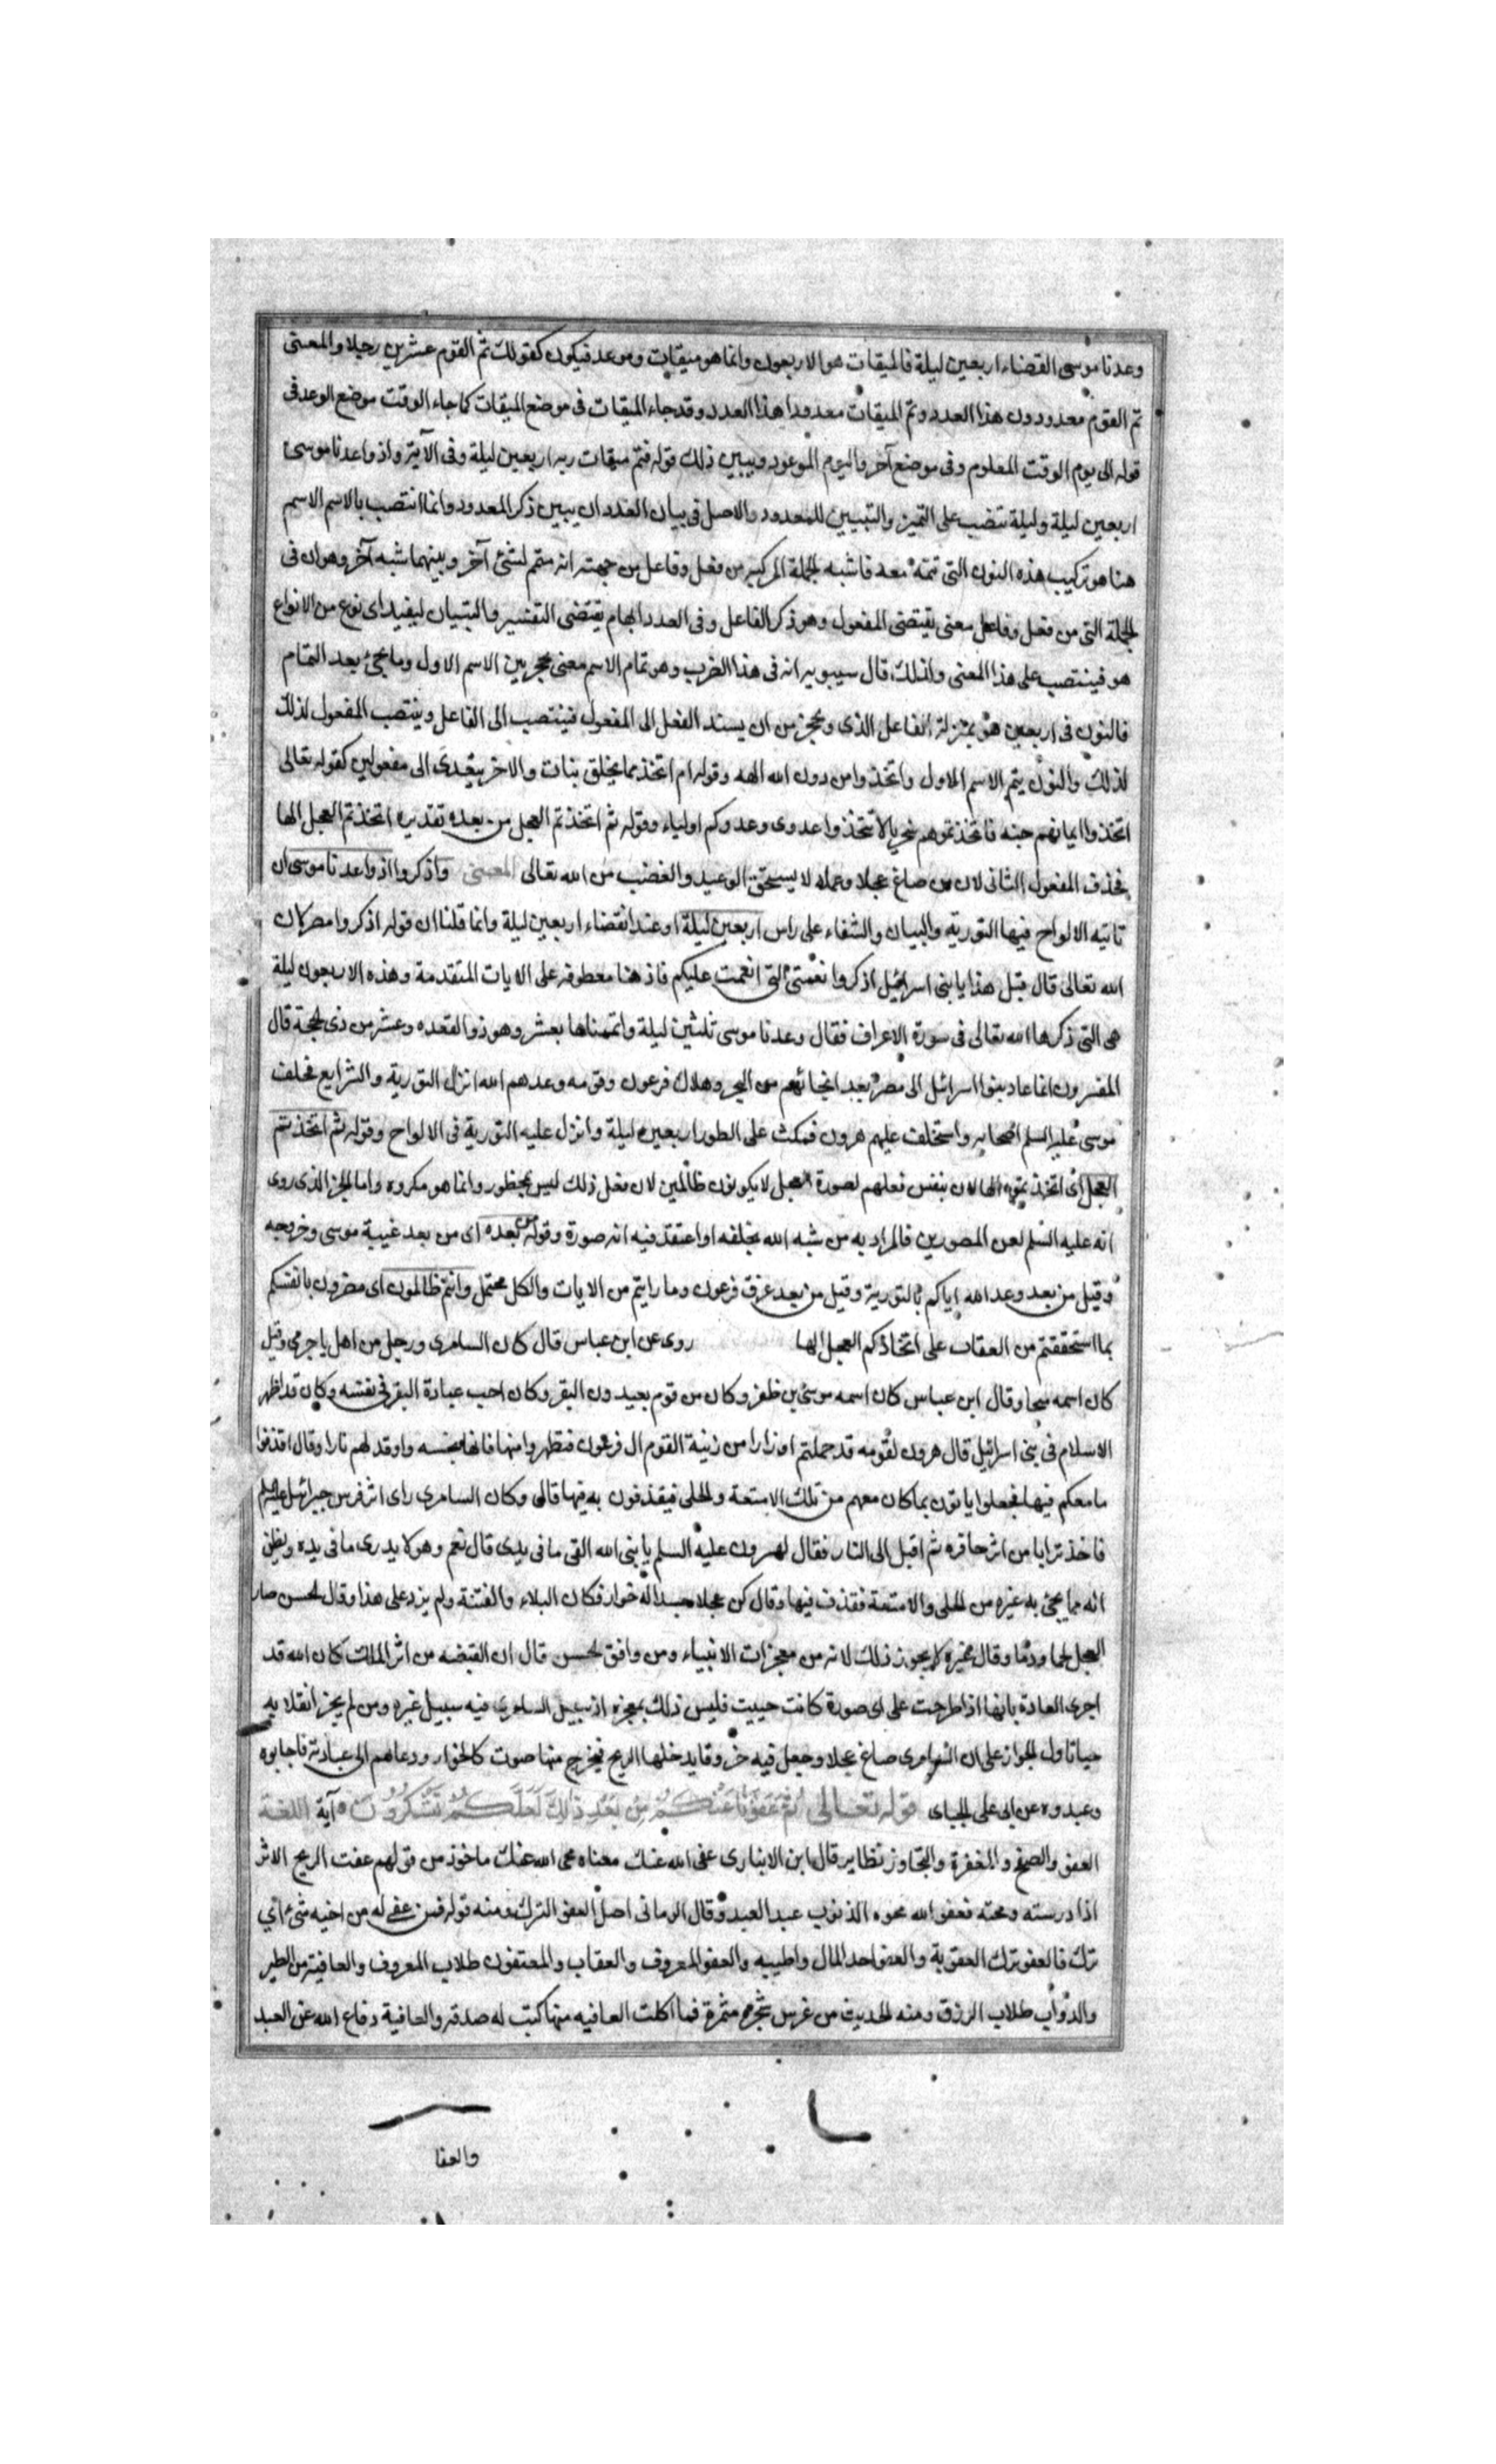 وعدنا موسى القضاء اربعين ليلة فالميقات هو الاربعون وانما هو ميقات وموعد فيكون كقولك تم القوم عشرين رجلا والمعنى
تم القوم معدودون هذا العدد وتم الميقات معدودا هذا العدد وقد جاء الميقات فى موضع الميقات كما جاء الوقت موضع الوعد فى
قوله الى يوم الوقت المعلوم وفى موضع آخر واليوم الموعود ويبين ذلك قوله فتم ميقات ربه اربعين ليلة وفى الآية واذ واعدنا موسى
اربعين ليلة وليلة تنصب على التميز والتبيين للمعدود والاصل فى بيان العدد ان يبين ذكر المعدود وانما انتصب بالاسم الاسم
هنا هو تركيب هذه النون التى تمته معه فاشبه الجملة المركبه من فعل وفاعل من جهته انه متمم لشئ آخر وبينهما شبه آخر وهو ان فى
الجملة التى من فعل وفاعل معنى يقتضى المفعول وهو ذكر الفاعل وفى العدد ابهام يقتضى التفسير والتبيان ليفيد اى نوع من الانواع
هو فينتصب على هذا المعنى ولذلك قال سيبويه انه فى هذا الضرب وهو تمام الاسم معنى يحجز بين الاسم الاول وما يجئ بعد التمام
فالنون فى اربعين هو بمنزلة الفاعل الذى ويحجز من ان يسند الفعل الى المفعول فينتصب الى الفاعل وينتصب المفعول لذلك
لذلك والنون يتم الاسم الاول واتخذوا من دون الله الهه وقوله ام اتخذ مما يخلق بنات والاخر يتعدى الى مفعولين كقوله تعالى
اتخذوا ايمانهم جنه فاتخذتموهم سخريا لا تتخذوا عدوى وعدوكم اولياء وقوله ثم اتخذتم العجل من بعده تقديره اتخذتم العجل الها
فحذف المفعول الثانى لان من صاغ عجلا وعمله لا يستحق الوعيد والغضب من الله تعالى المعنى واذكروا اذ واعدنا موسى ان
تاتيه الالواح فيها التورية والبيان والشفاء على راس اربعين ليلة او عند انقضاء اربعين ليلة وانما قلنا ان قوله اذكروا مضمر لان
الله تعالى قال قبل هذا يا بنى اسرائيل اذكروا نعمتى التى انعمت عليكم فاذ هنا معطوفه على الايات المتقدمة وهذه الاربعون ليلة
هى التى ذكرها الله تعالى فى سورة الاعراف فقال وعدنا موسى ثلثين ليلة واتممناها بعشر وهو ذو القعده وعشر من ذى الحجة قال
المفسرون انما عاد بنوا اسرائل الى مصر بعد انجائهم من البحر وهلاك فرعون وقومه وعدهم الله انزل التورية والشرايع فخلف
موسى عليه السلم اصحابه واستخلف عليهم هرون فمكث على الطور اربعين ليلة وانزل عليه التورية فى الالواح وقوله ثم اتخذتم
العجل اى اتخذتموه الها لان بنفس فعلهم لصورة العجل لا يكونون ظالمين لان فعل ذلك ليس بمحظور وانما هو مكروه واما الخبر الذى روى
انه عليه السلم لعن المصورين فالمراد به من شبه الله بخلقه او اعتقد فيه انه صورة وقوله من بعده اى من بعد غيبة موسى وخروجه
وقيل من بعد وعد الله اياكم بالتورية وقيل من بعد غرق فرعون وما رايتم من الايات والكل محتمل وانتم ظالمون اى مضرون بانفسكم
بما استحققتم من العقاب على اتخاذكم العجل الها روى عن ابن عباس قال كان السامرى ورجل من اهل باجرمى وقيل
كان اسمه ميحا وقال ابن عباس كان اسمه موسى بن ظفر وكان من قوم يعبدون البقر وكان احب عبادة البقر فى نفسه وكان قد اظهر
الاسلام فى بنى اسرائيل قال هرون لقومه قد حملتم اوزارا من زينة القوم ال فرعون فتطهروا منها فانها نجسه واوقد لهم نارا وقال اقذفوا
ما معكم فيها فجعلوا ياتون بما كان معهم من تلك الامتعة والحلى فيقذفون به فيها قالى وكان السامرى راى اثر فرس جبرائيل عليه السلم
فاخذ ترابا من اثر حافره ثم اقبل الى النار فقال لهرون عليه السلم يا نبى الله القى ما فى يدى قال نعم وهو لا يدرى ما فى يده ويظن
انه مما يجئ به غيره من الحلى والامتعة فقذف فيها وقال كن عجلا جسدا له خوار فكان البلاء والفتنة ولم يزد على هذا وقال الحسن صار
العجل لحما ودما وقال غيره لا يجوز ذلك لانه من معجزات الانبياء ومن وافق الحسن قال ان القبضه من اثر الملك كان الله قد
اجرى العادة بانها اذا طرحت على اى صورة كانت حييت فليس ذلك بمعجزه اذ سبيل السامرى فيه سبيل غيره ومن لم يجز انقلابه
حيا تاول الخوار على ان السامرى صاغ عجلا وجعل فيه خروقا يدخلها الريح فيخرج منها صوت كالخوار ودعاهم الى عبادته فاجابوه
وعبدوه عن ابى على الجباى قوله تعالى ثم عفونا عنكم من بعد ذلك لعلكم تشكرون آية اللغة
العفو والصفح والمغفرة والتجاوز نظاير قال ابن الانبارى عفى الله عنك معناه محى الله عنك ماخوذ من قولهم عفت الريح الاثر
اذا درسته ومحته فعفو الله محوه الذنوب عبد العبد وقال الرمانى اصل العفو الترك ومنه قوله فمن عفى له من اخيه شئ اى
ترك فالعفو ترك العقوبة والعفو احد المال واطيبه والعفو المعروف والعقاب والمعتفون طلاب المعروف والعافية من الطير
والدواب طلاب الرزق ومنه الحديث من غرس شجره مثمرة فما اكلت العافيه منها كتب له صدقه والعافية دفاع الله عن العبد
والعفا